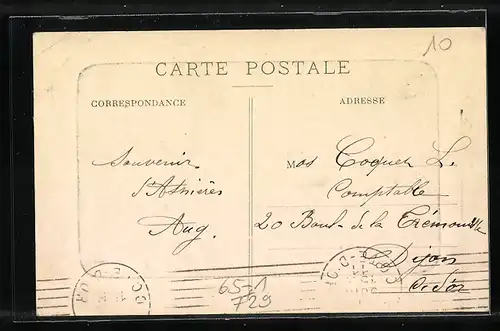 10
CARTE POSTALE
CORRESPONDANCE
ADRESSE
Souvenir
d'Asnières
Aug.
Mos Coquer L.
Comptable
20 Boul. de la Trémouille
Dijon
Cte d'Or
65-1
729